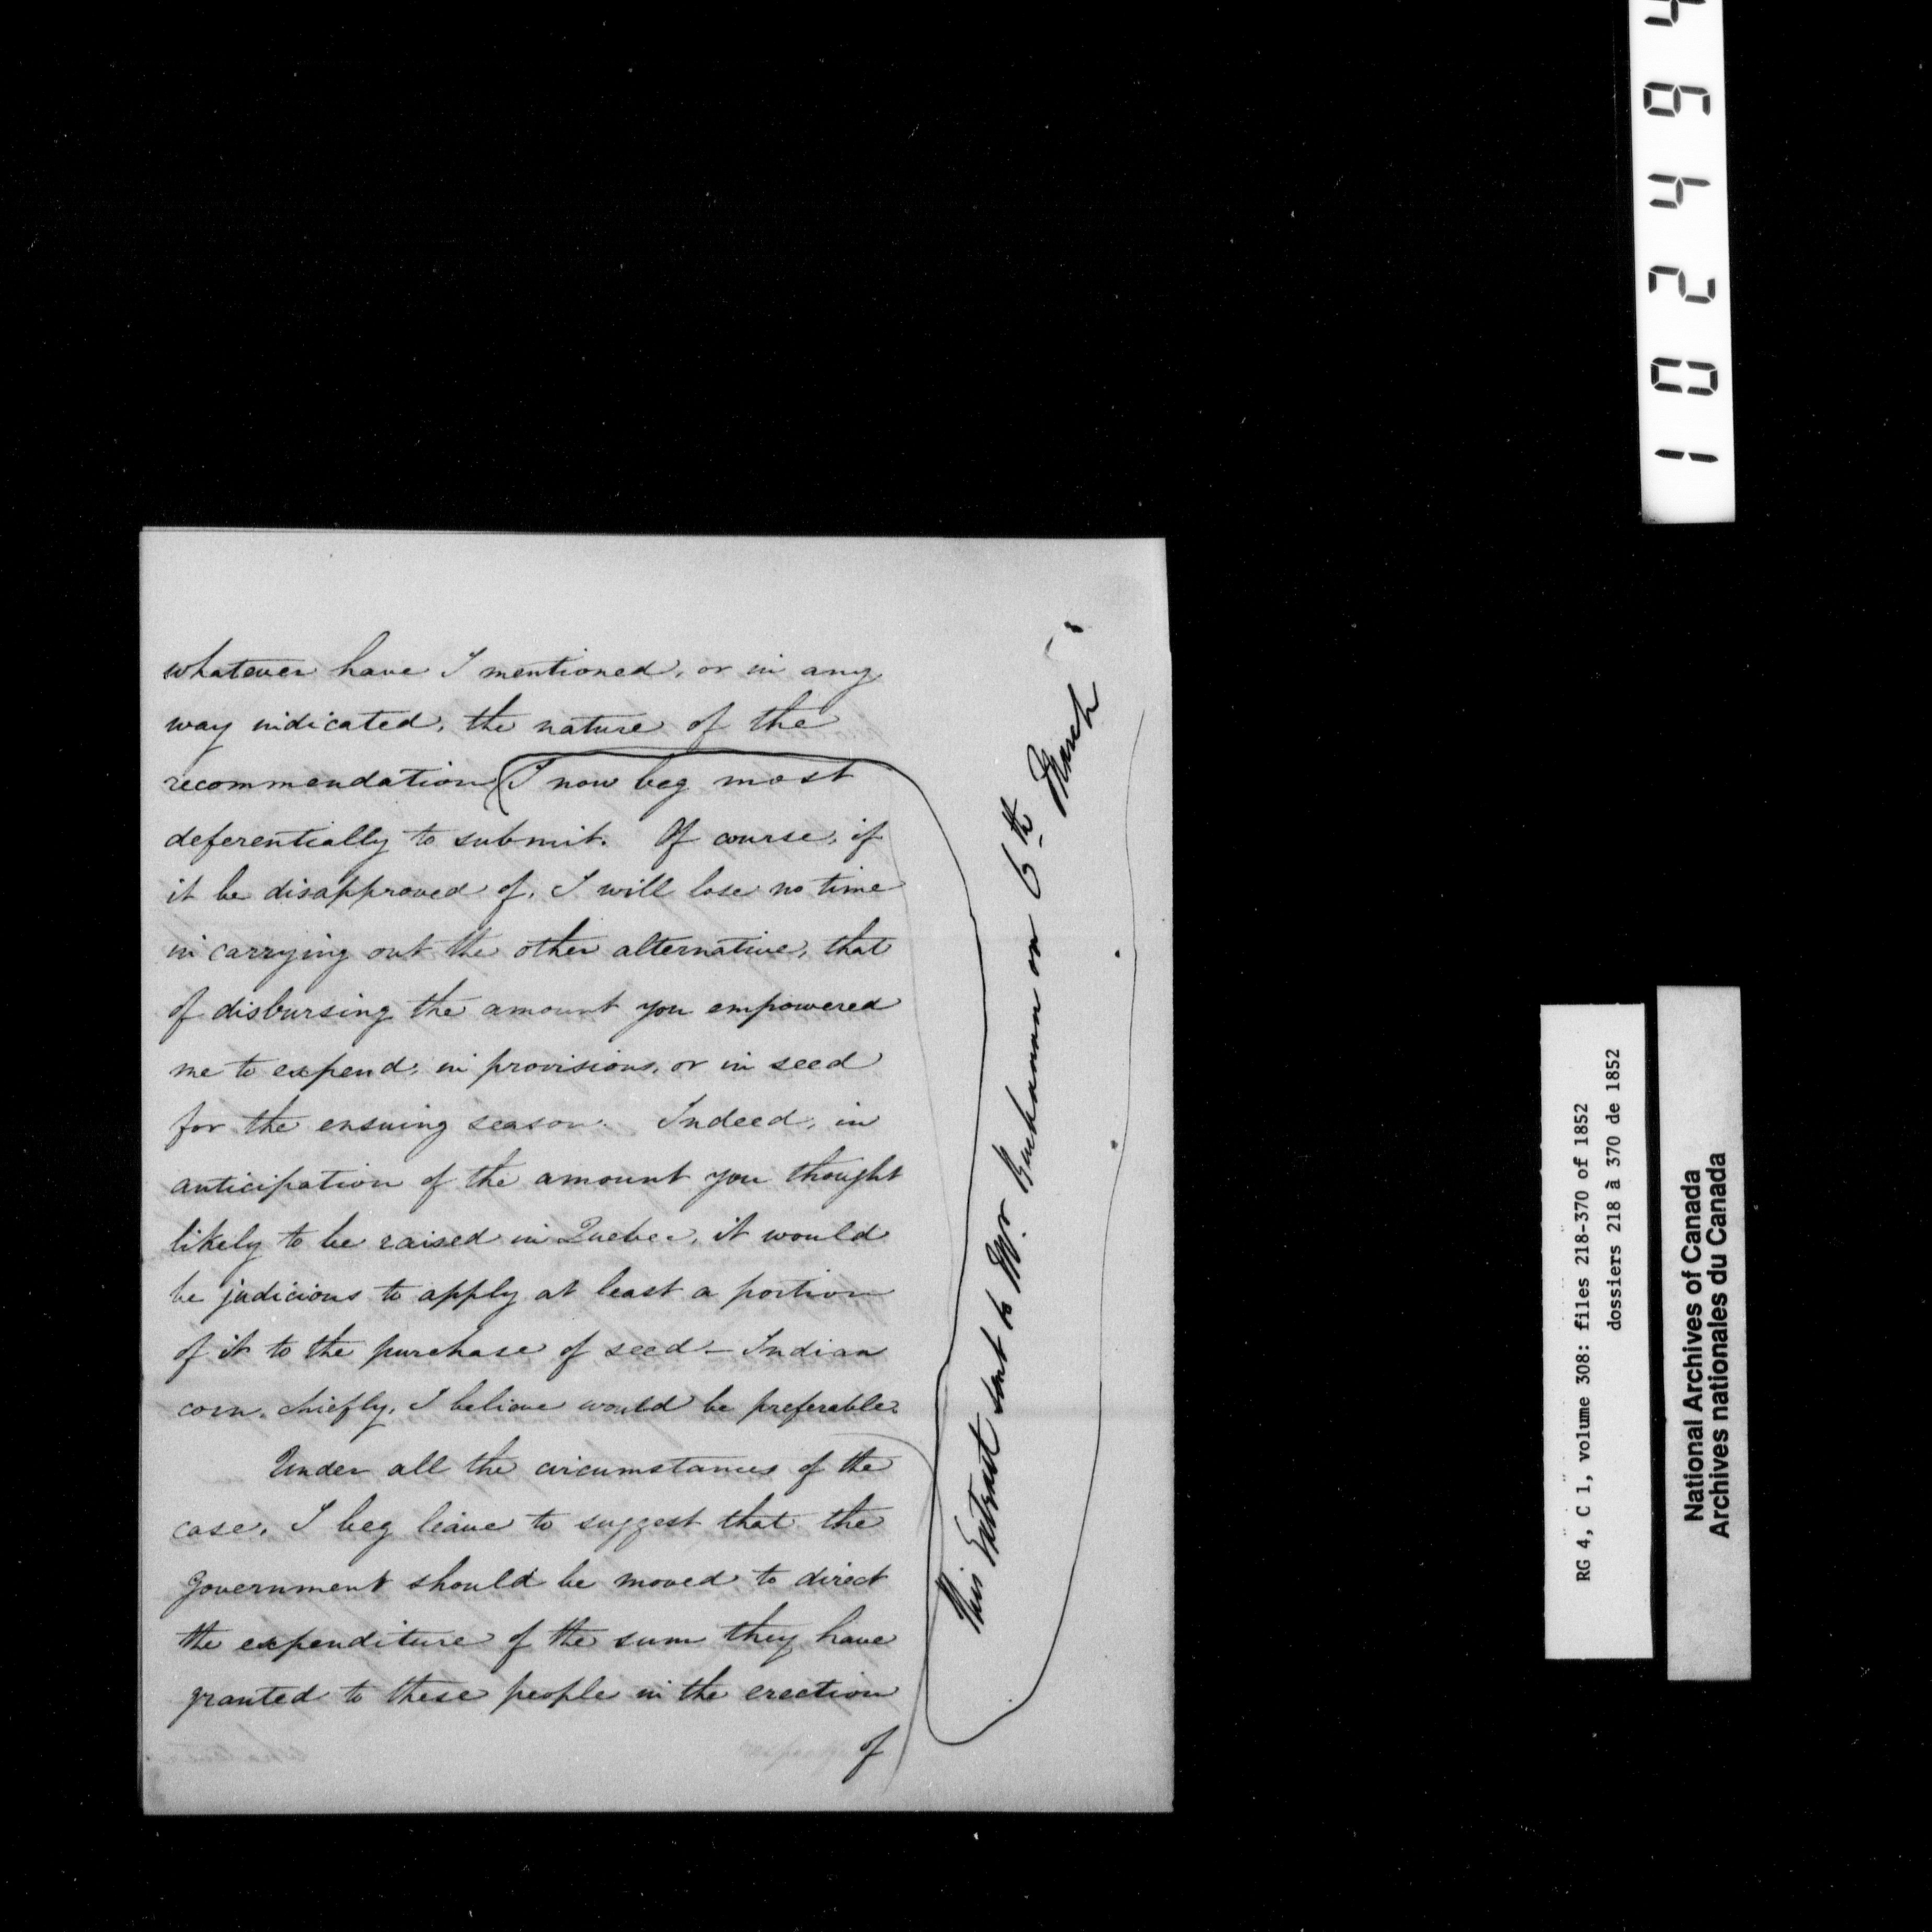 whatever have I mentioned, or in any
way indicated, the nature of the
recommendation (I now beg most
deferentially to submit. Of course, if
it be disapproved of, I will lose no time
in carrying out the other alternative, that
of disbursing the amount you empowered
me to expend, in provisions, or in seed
for the ensuing season. Indeed, in
anticipation of the amount you thought
likely to be raised in Quebec, it would
be judicious to apply at least a portion
of it to the purchase of seed - Indian
corn, chiefly, I believe would be preferable.
Under all the circumstances of the
case, I beg leave to suggest that the
Government should be moved to direct
the expenditure of the sum they have
granted to these people in the erection
of
This Extract sent to Mr. Buchanan on 6th March
102464
RG 4, C 1, volume 308: files 218-370 of 1852
dossiers 218 à 370 de 1852
National Archives of Canada
Archives nationales du Canada